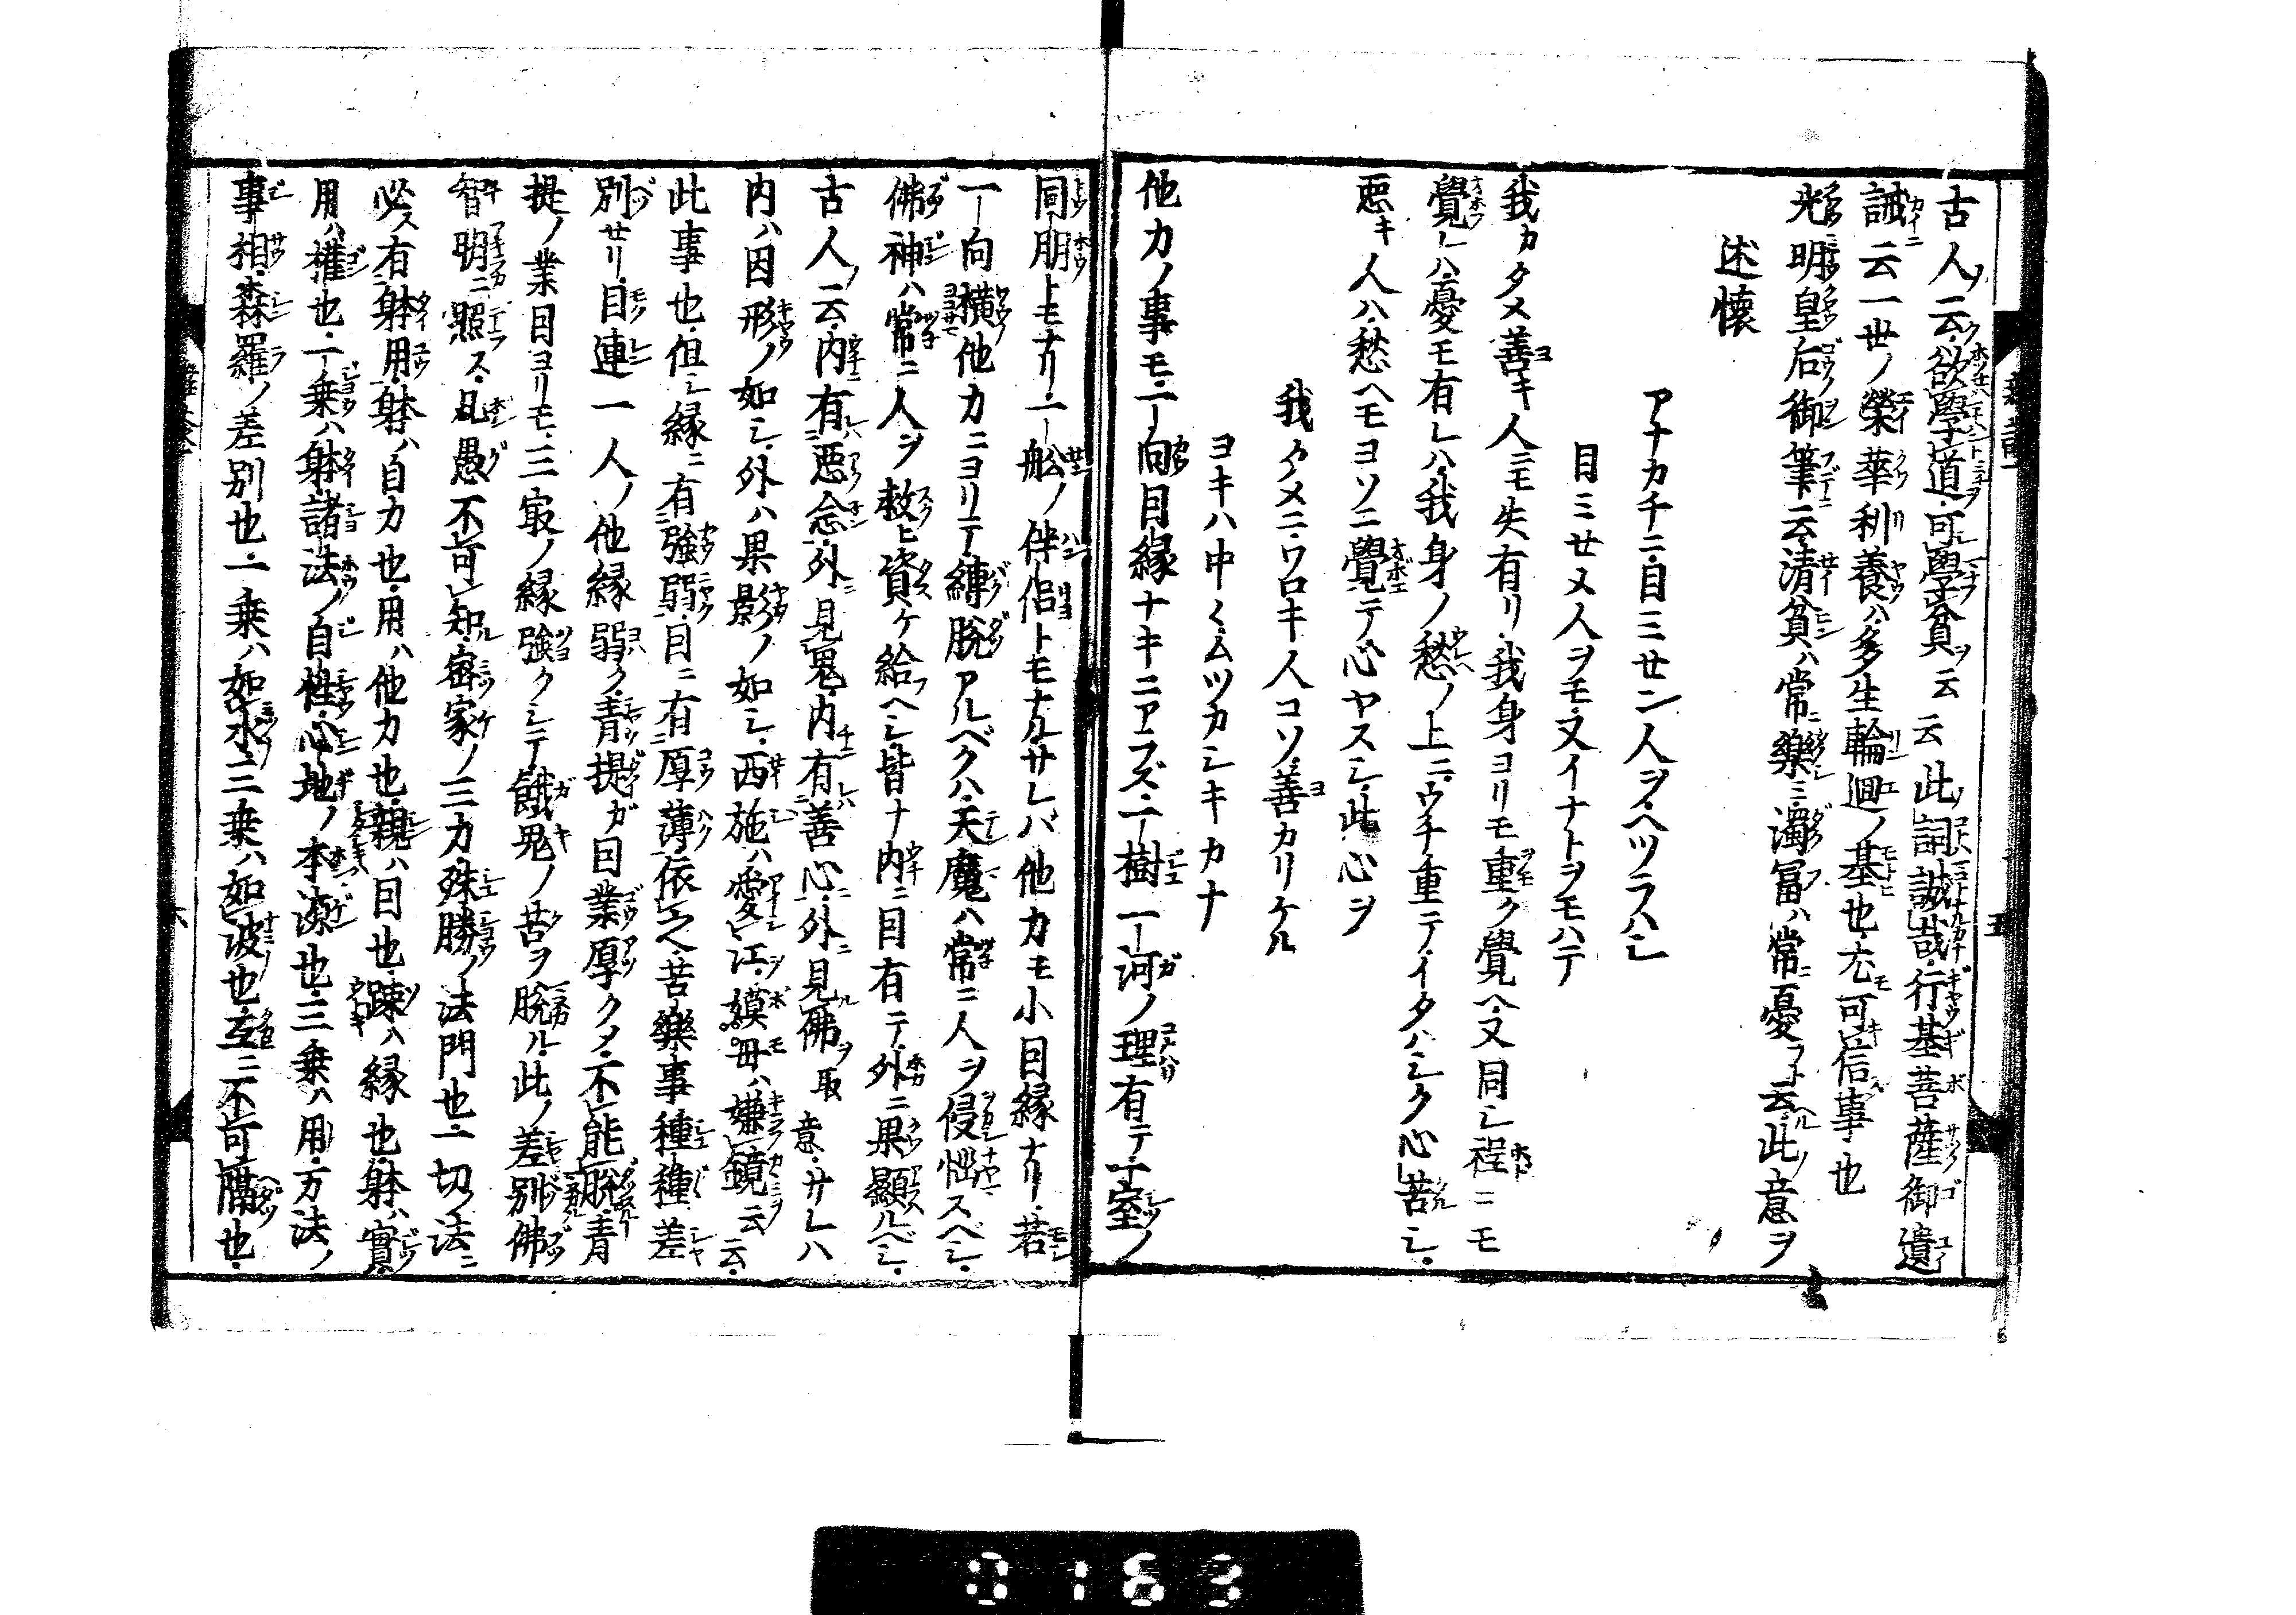 古人ノ云欲學道可學貧ヲ云云此ノ詞誠哉行基菩薩御遺
誡云一世ノ榮華利養ハ多生輪廻ノ基也尤可信事也
光明皇后御筆云清貧ハ常ニ樂ミ濁冨ハ常ニ憂フト云ヘル此ノ意ヲ
述懷
アナカチニ目ミセン人ヲヘツラハシ
目ミセヌ人ヲモ又イナトヲモハテ
我カタメ善キ人ニモ失有リ我身ヨリモ重ク覺ヘ又同シ程ニモ
覺レハ憂モ有レハ我身ノ愁ノ上ニウチ重テイタハシク心苦シ
惡キ人ハ愁ヘモヨソニ覺テ心ヤスシ此心ヲ
我タメニワロキ人コソ善カリケル
ヨキハ中〱ムツカシキカナ
他力ノ事モ一向因縁ナキニアラズ一樹一河ノ理有テ一室ノ
同朋トモナリ一舩ノ伴侶トモナルサレバ他力モ小因縁ナリ若
一向橫他力ニヨリテ縛脫アルベクハ天魔ハ常ニ人ヲ侵惱スベシ
佛神ハ常ニ人ヲ救ヒ資ケ給フヘシ皆ナ内ニ因有テ外ニ果顯ルベシ
古人ノ云内ニ有レハ惡念外ニ見鬼内ニ有レハ善心外ニ見ル佛ヲ取意サレハ
内ハ因形ノ如シ外ハ果影ノ如シ西施ハ愛シ江ヲ嫫母ハ嫌鏡ヲ云云
此事也但シ縁ニ有強弱因ニ有厚薄依之苦樂事種種差
別セリ目連一人ノ他縁弱ク青提ガ因業厚クメ不能脫青
提ノ業因ヨリモ三寂ノ縁強クシテ餓鬼ノ苦ヲ脫ル此ノ差別佛
智明ニ照ス凡愚不可知密家ノ三力殊勝ノ法門也一切ノ法ニ
必ス有躰用躰ハ自力也用ハ他力也親ハ因也踈ハ縁也躰ハ實
用ハ權也一乘ハ躰諸法ノ自性心地ノ本源也三乘ハ用万法ノ
事相森羅ノ差別也一乘ハ如水三乘ハ如波也互ニ不可隔也